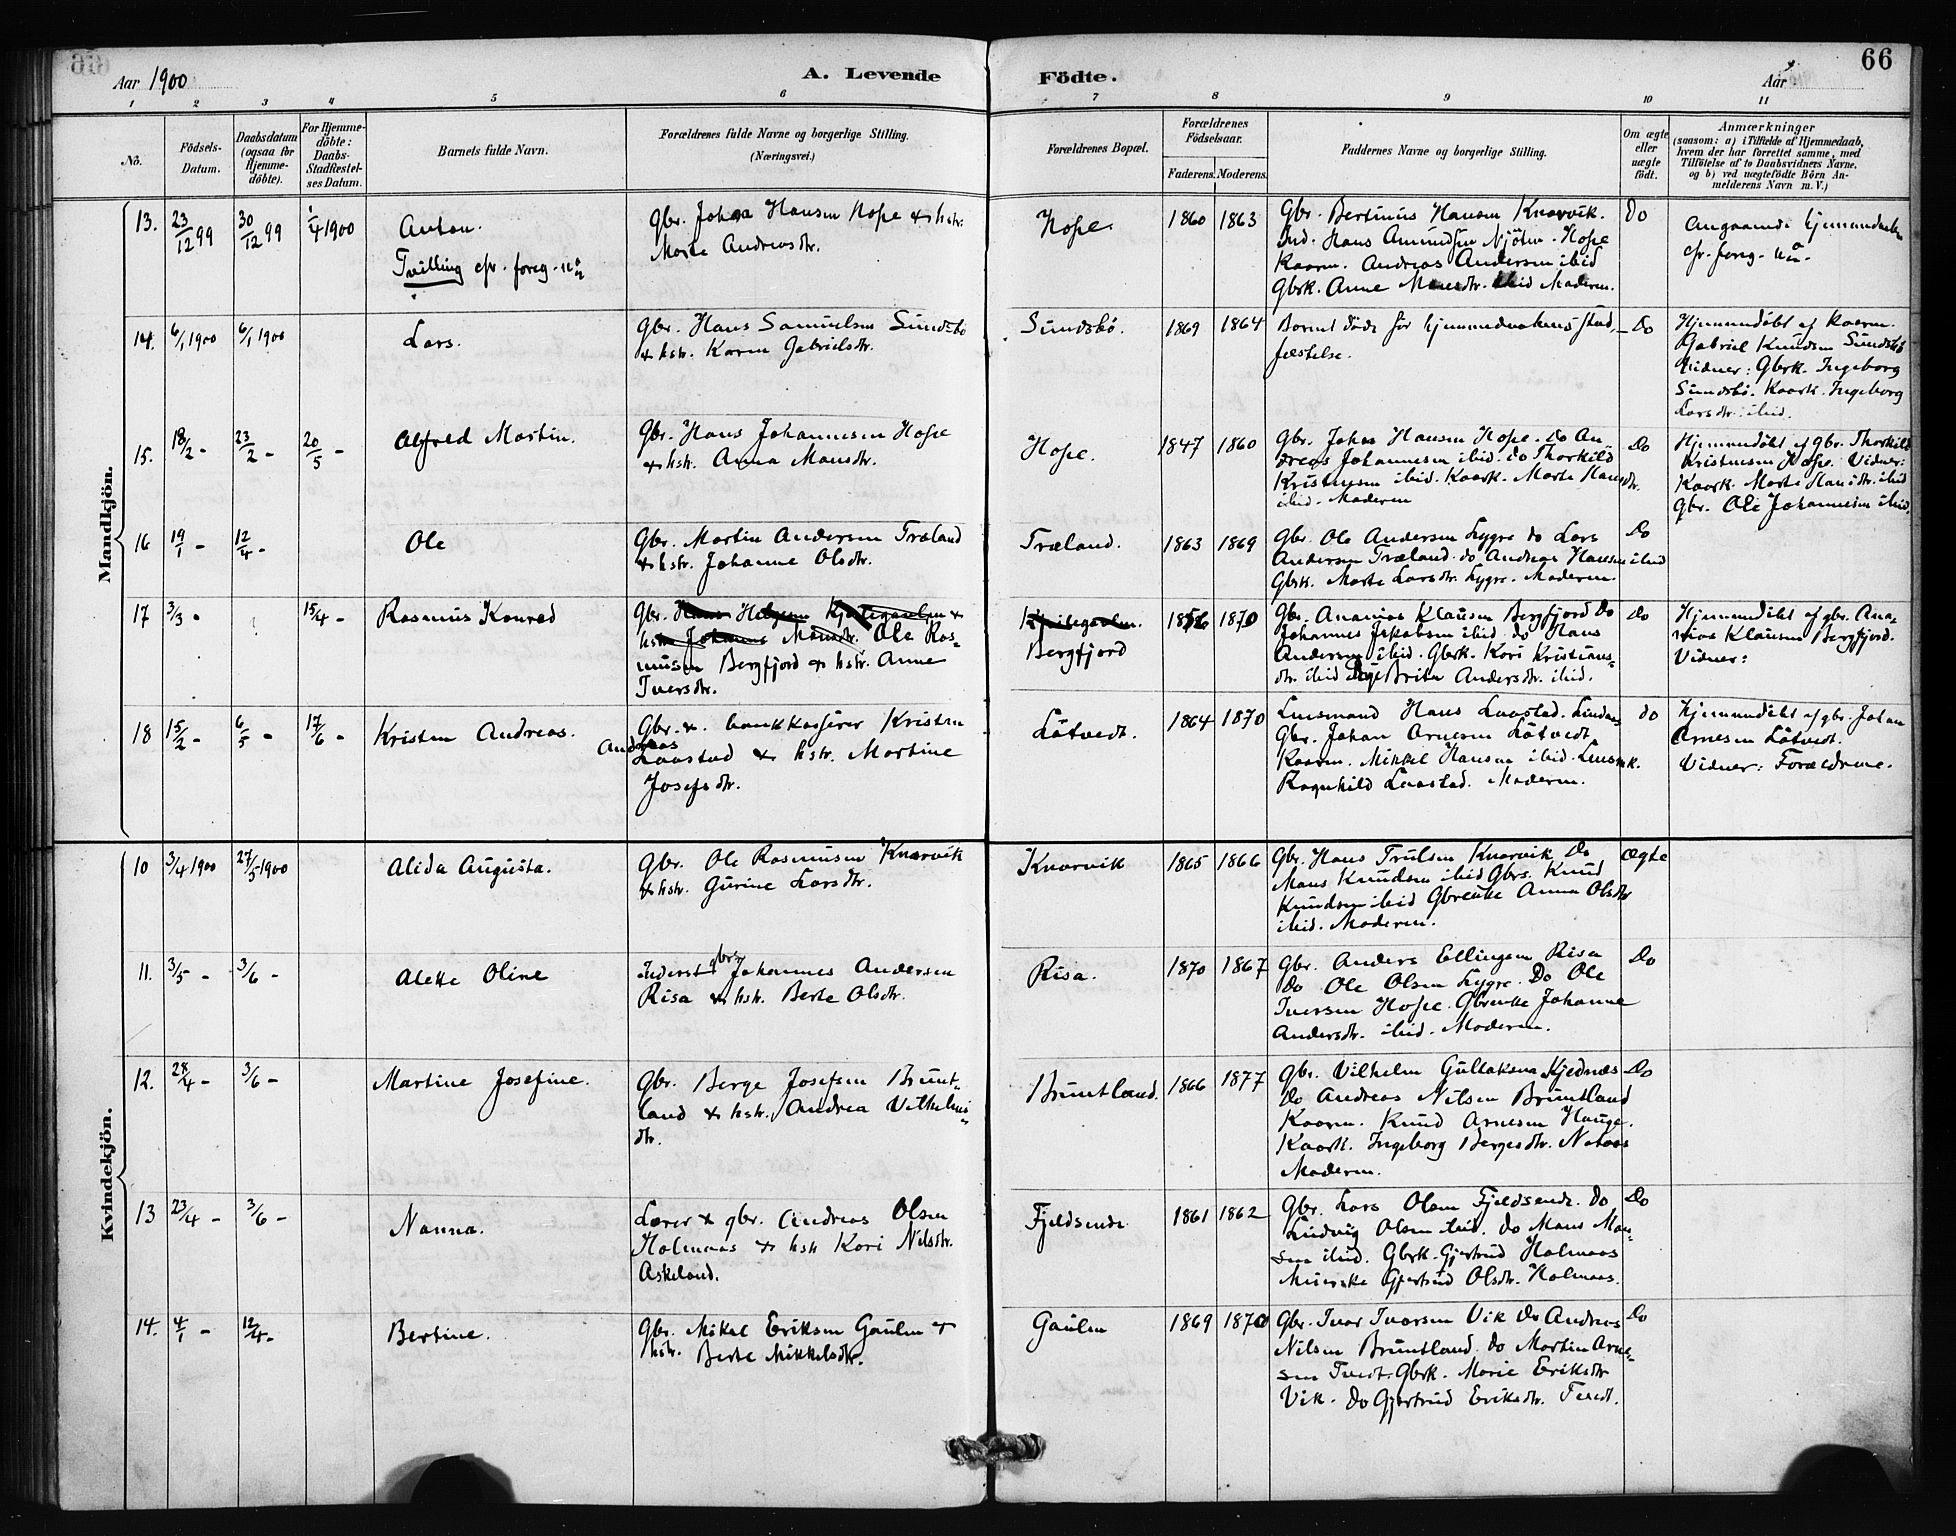 66
Aar 1900
A. Levende
Födte.
Aar
1 2 3 4 5 6 7 8 9 10 11
Nö.
Födsels-
Datum.
Daabsdatum
(ogsaa for
Hjemme-
döbte).
For Hjemme-
döbte:
Daabs-
Stadfæstel-
ses Datum.
Barnets fulde Navn.
Forældrenes fulde Navne og borgerlige Stilling.
(Næringsvei.)
Forældrenes Bopæl.
Forældrenes
Födselsaar.
Faderens. Moderens.
Faddernes Navne og borgerlige Stilling.
Om ægte
eller
uægte
födt.
Anmærkninger
(saasom: a) i Tilfælde af Hjemmedaab,
hvem der har forrettet samme, med
Tilföielse af to Daabsvidners Navne,
og b) ved uægtefödte Börn An-
melderens Navn m. V.)
Mandkjön.
13. 23/12 99 30/12 99 1/4 1900
Anton.
Tvilling cfr. foreg. no
Gbr. Johan Hansen Hope & hstr.
Marte Andreasdtr.
Hope. 1860 1863
Gbr. Bertinius Hansen Knarvik.
Ind. Hans Amundsen Njöten. Hope
Kaarm. Andreas Andersen ibid
Gbrk. Anne Mansdtr. ibid Moderen.
Do
Angaaende hjemmedaaben
cfr. foreg. no.
14. 6/1 1900 6/1 1900
Lars.
Gbr. Hans Samuelsen Sundsbö
& hstr. Karen Gabrielsdtr.
Sundsbö. 1869 1864
Barnet döde för hjemmedaabens stad-
fæstelse.
Do
Hjemmedöbt af kaarm.
Gabriel Knudsen Sundsbö
Vidner: Gbrk. Ingeborg
Sundsbö. Kaark. Ingeborg
Larsdtr. ibid.
15. 18/2 - 23/2 - 20/5 -
Alfred Martin.
Gbr. Hans Johannesen Hope
& hstr. Anna Mansdtr.
Hope. 1847 1860
Gbr. Johan Hansen Hope. Do An-
dreas Johannesen ibid. do Thorkild
Kristensen ibid. Kaark. Marte Hansdtr.
ibid. Moderen
Do
Hjemmedöbt af gbr. Thorkild
Kristensen Hope. Vidner:
Kaark. Marte Hansdtr. ibid
Gbr. Ole Johannesen ibid.
16 19/1 - 12/4 -
Ole
Gbr. Martin Andersen Træland
& hstr. Johanne Olsdtr.
Træland. 1863 1869
Gbr. Ole Andersen Lygre do Lars
Andersen Træland. do Andreas Hansen ibid
Gbrk. Marte Larsdtr. Lygre. Moderen.
Do
17 3/3 - 15/4 -
Rasmus Konrad
Gbr. Hans Helgesen &
hstr. Johanne Mansdtr. Ole Ras-
musen Bergfjord & hstr. Anne
Iversdtr.
Bergfjord
1870
Gbr. Ananias Klausen Bergfjord Do
Johannes Jakobsen ibid. do Hans
Andersen ibid. Gbrk. Kari Kristians-
dtr. ibid Brita Andersdtr. ibid.
Do
Hjemmedöbt af gbr. Ana-
nias Klausen Bergfjord.
Vidner:
18 15/2 - 6/5 - 17/6 -
Kristen Andreas.
Gbr. & bankkasserer Kristen
Andreas
Laastad & hstr. Martine
Josefsdtr.
Låtvedt. 1864 1870
Lensmand Hans Laastad. Lindaas
Gbr. Johan Arnesen Låtvedt
Kaarm. Mikkel Hansen ibid. Lensmk.
Ragnhild Laastad. Moderen.
do
Hjemmedöbt af gbr. Johan
Arnesen Låtvedt.
Vidner: Forældrene.
Kvindekjön.
10 3/4 1900 27/5 1900
Alida Augusta.
Gbr. Ole Rasmusen Knarvik
& hstr. Gurine Larsdtr.
Knarvik 1865 1866
Gbr. Hans Trulsen Knarvik Do
Mans Knudsen ibid Gbrs. Knud
Knudsen ibid Gbrenke Anna Olsdtr
ibid. Moderen.
Ægte
11. 3/5 - 3/6 -
Alette Oline
Inderst gbrs. Johannes Andersen
Risa & hstr. Berte Olsdtr.
Risa. 1870 1867
Gbr. Anders Ellingsen Risa
Do Ole Olsen Lygre. Do Ole
Iversen Hope. Gbrenke Johanne
Andersdtr. ibid. Moderen.
Do
12. 28/4 - 3/6 -
Martine Josefine.
Gbr. Berge Josefsen Brunt-
land & hstr. Andrea Vilhelms-
dtr.
Bruntland. 1866 1877
Gbr. Vilhelm Gullaksen Kjednæs
Do Andreas Nilsen Bruntland
Kaarm. Knud Arnesen Hauge.
Kaark. Ingeborg Bergesdtr.
Moderen.
Do
13 23/4 - 3/6 -
Nanna.
Lærer & gbr. Andreas Olsen
Holmaas & hstr Kari Nilsdtr.
Askeland.
Fjeldsende 1861 1862
Gbr. Lars Olsen Fjeldsende. Do
Ludvig Olsen ibid. do Mans Man-
sen ibid. Gbrk. Gjertrud Holmaas
Gjertrud Olsdtr. Holmaas.
Do
14. 4/1 - 12/4 -
Bertine.
Gbr. Mikal Eriksen Gaulen &
hstr. Berte Mikkelsdtr.
Gaulen 1869 1870
Gbr. Ivar Ivarsen Vik Do Andreas
Nilsen Bruntland. do Martin Arne-
sen Tvedt. Gbrk. Marie Eriksdtr
Vik. Do Gjertrud Eriksdtr. Tvedt.
Do